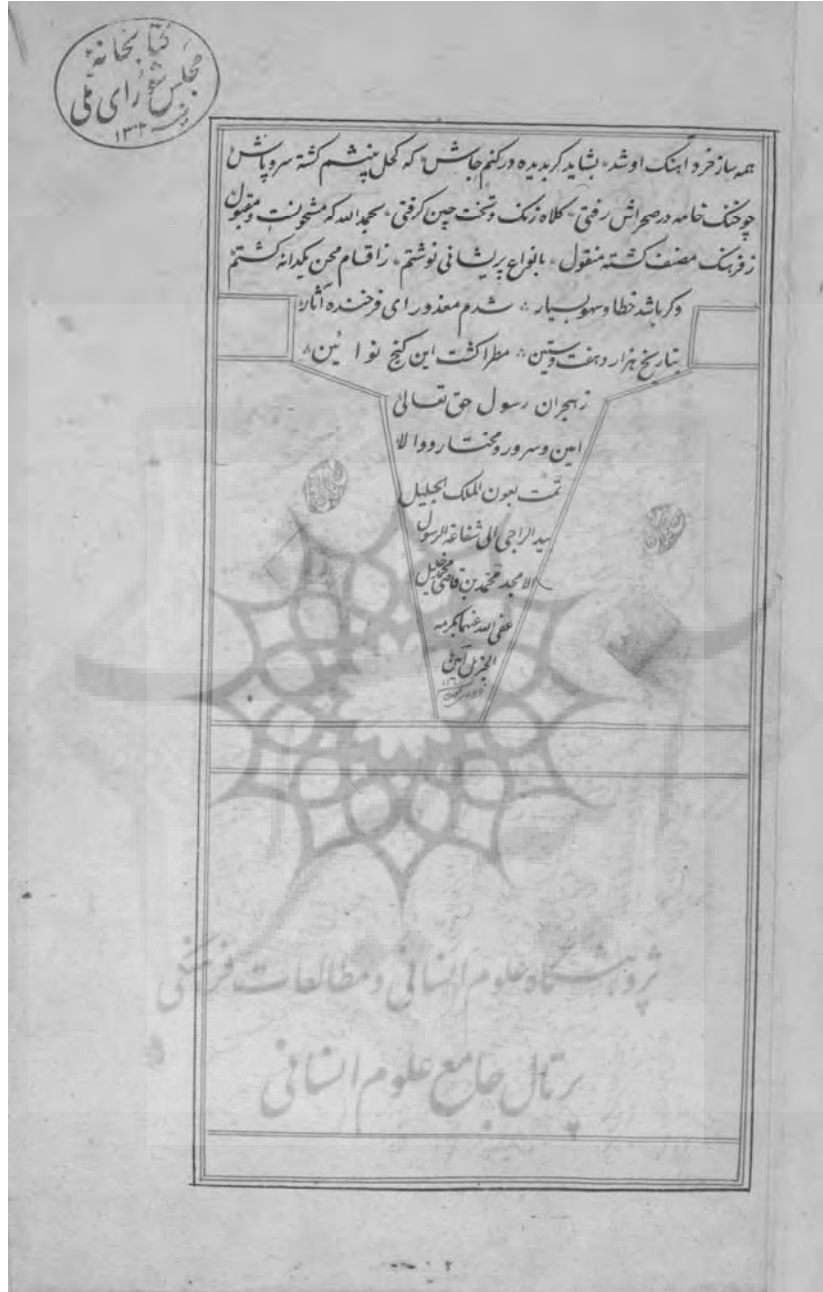 کتابخانه
مجلس شورای ملی
۱۳۰۲
همه ساز خرد آهنک او شد ؞ بشاید کر بدیده در کنم جاش ؞ که کحل چشم کشته سر و پاش
چو خنک خامه در صحراش رفتی ؞ کلاه زنک و تخت چین کرفتی ؞ بحمد الله که مشحونست و مقبول
ز فرهنک مصنف کشته منقول ؞ بانواع پریشانی نوشتم ؞ ز اقسام محن یکدانه کشتم
وکر باشد خطا و سهو بسیار ؞ شدم معذور ای فرخنده آثار
بتاریخ هزار و هفت و ستین ؞ مطرا کشت این کنج نو ائین ؞
ز هجران رسول حق تعالی
امین و سرور و مختار و والا
تمت بعون الملک الجلیل
بید الراجی الی شفاعة الرسول
الامجد محمد بن قاضی محمد خلیل
عفی الله عنهما بکرمه
الجزیل آمین
پژوهشگاه علوم انسانی و مطالعات فرهنگی
پرتال جامع علوم انسانی